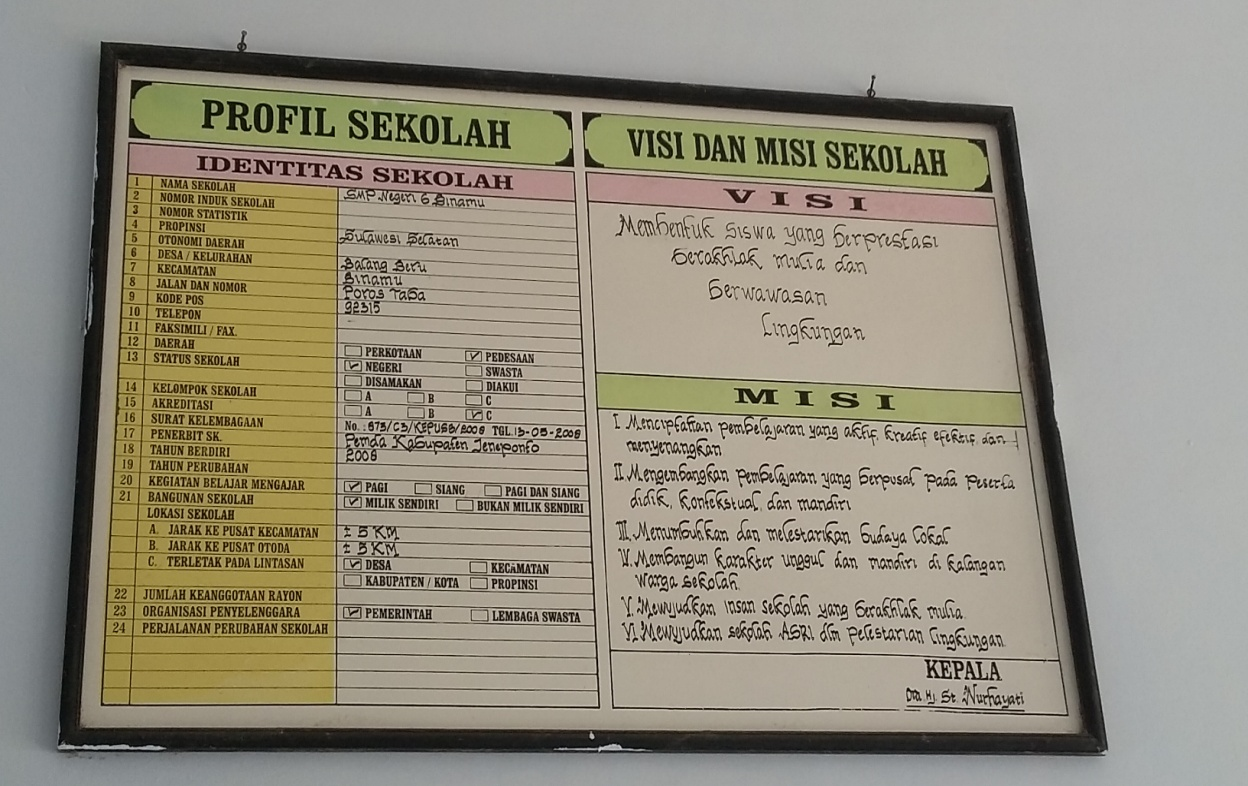 PROFIL SEKOLAH
IDENTITAS SEKOLAH
1 NAMA SEKOLAH SMP Negeri 6 Binamu
2 NOMOR INDUK SEKOLAH
3 NOMOR STATISTIK
4 PROPINSI Sulawesi Selatan
5 OTONOMI DAERAH
6 DESA / KELURAHAN Balang Beru
7 KECAMATAN Binamu
8 JALAN DAN NOMOR Poros Taba
9 KODE POS 92315
10 TELEPON -
11 FAKSIMILI / FAX.
12 DAERAH PERKOTAAN ✓ PEDESAAN
13 STATUS SEKOLAH ✓ NEGERI SWASTA
DISAMAKAN DIAKUI
14 KELOMPOK SEKOLAH A B C
15 AKREDITASI A B ✓ C
16 SURAT KELEMBAGAAN No. : 673/C3/KEPUSB/2008 TGL 13-05-2008
17 PENERBIT SK. Pemda Kabupaten Jeneponto
18 TAHUN BERDIRI 2006
19 TAHUN PERUBAHAN
20 KEGIATAN BELAJAR MENGAJAR ✓ PAGI SIANG PAGI DAN SIANG
21 BANGUNAN SEKOLAH ✓ MILIK SENDIRI BUKAN MILIK SENDIRI
LOKASI SEKOLAH
A. JARAK KE PUSAT KECAMATAN ± 5 KM
B. JARAK KE PUSAT OTODA ± 5 KM
C. TERLETAK PADA LINTASAN ✓ DESA KECAMATAN
KABUPATEN / KOTA PROPINSI
22 JUMLAH KEANGGOTAAN RAYON
23 ORGANISASI PENYELENGGARA ✓ PEMERINTAH LEMBAGA SWASTA
24 PERJALANAN PERUBAHAN SEKOLAH
VISI DAN MISI SEKOLAH
VISI
Membentuk siswa yang berprestasi
berakhlak mulia dan
berwawasan
lingkungan
MISI
I Menciptakan pembelajaran yang aktif, kreatif efektif, dan
menyenangkan
II. Mengembangkan pembelajaran yang berpusat pada peserta
didik, kontekstual, dan mandiri
III. Menumbuhkan dan melestarikan budaya lokal
IV. Membangun karakter unggul dan mandiri di kalangan
warga sekolah.
V. Mewujudkan insan sekolah yang berakhlak mulia.
VI. Mewujudkan sekolah ASRI dlm pelestarian lingkungan.
KEPALA
Dra. Hj. St. Nurhayati